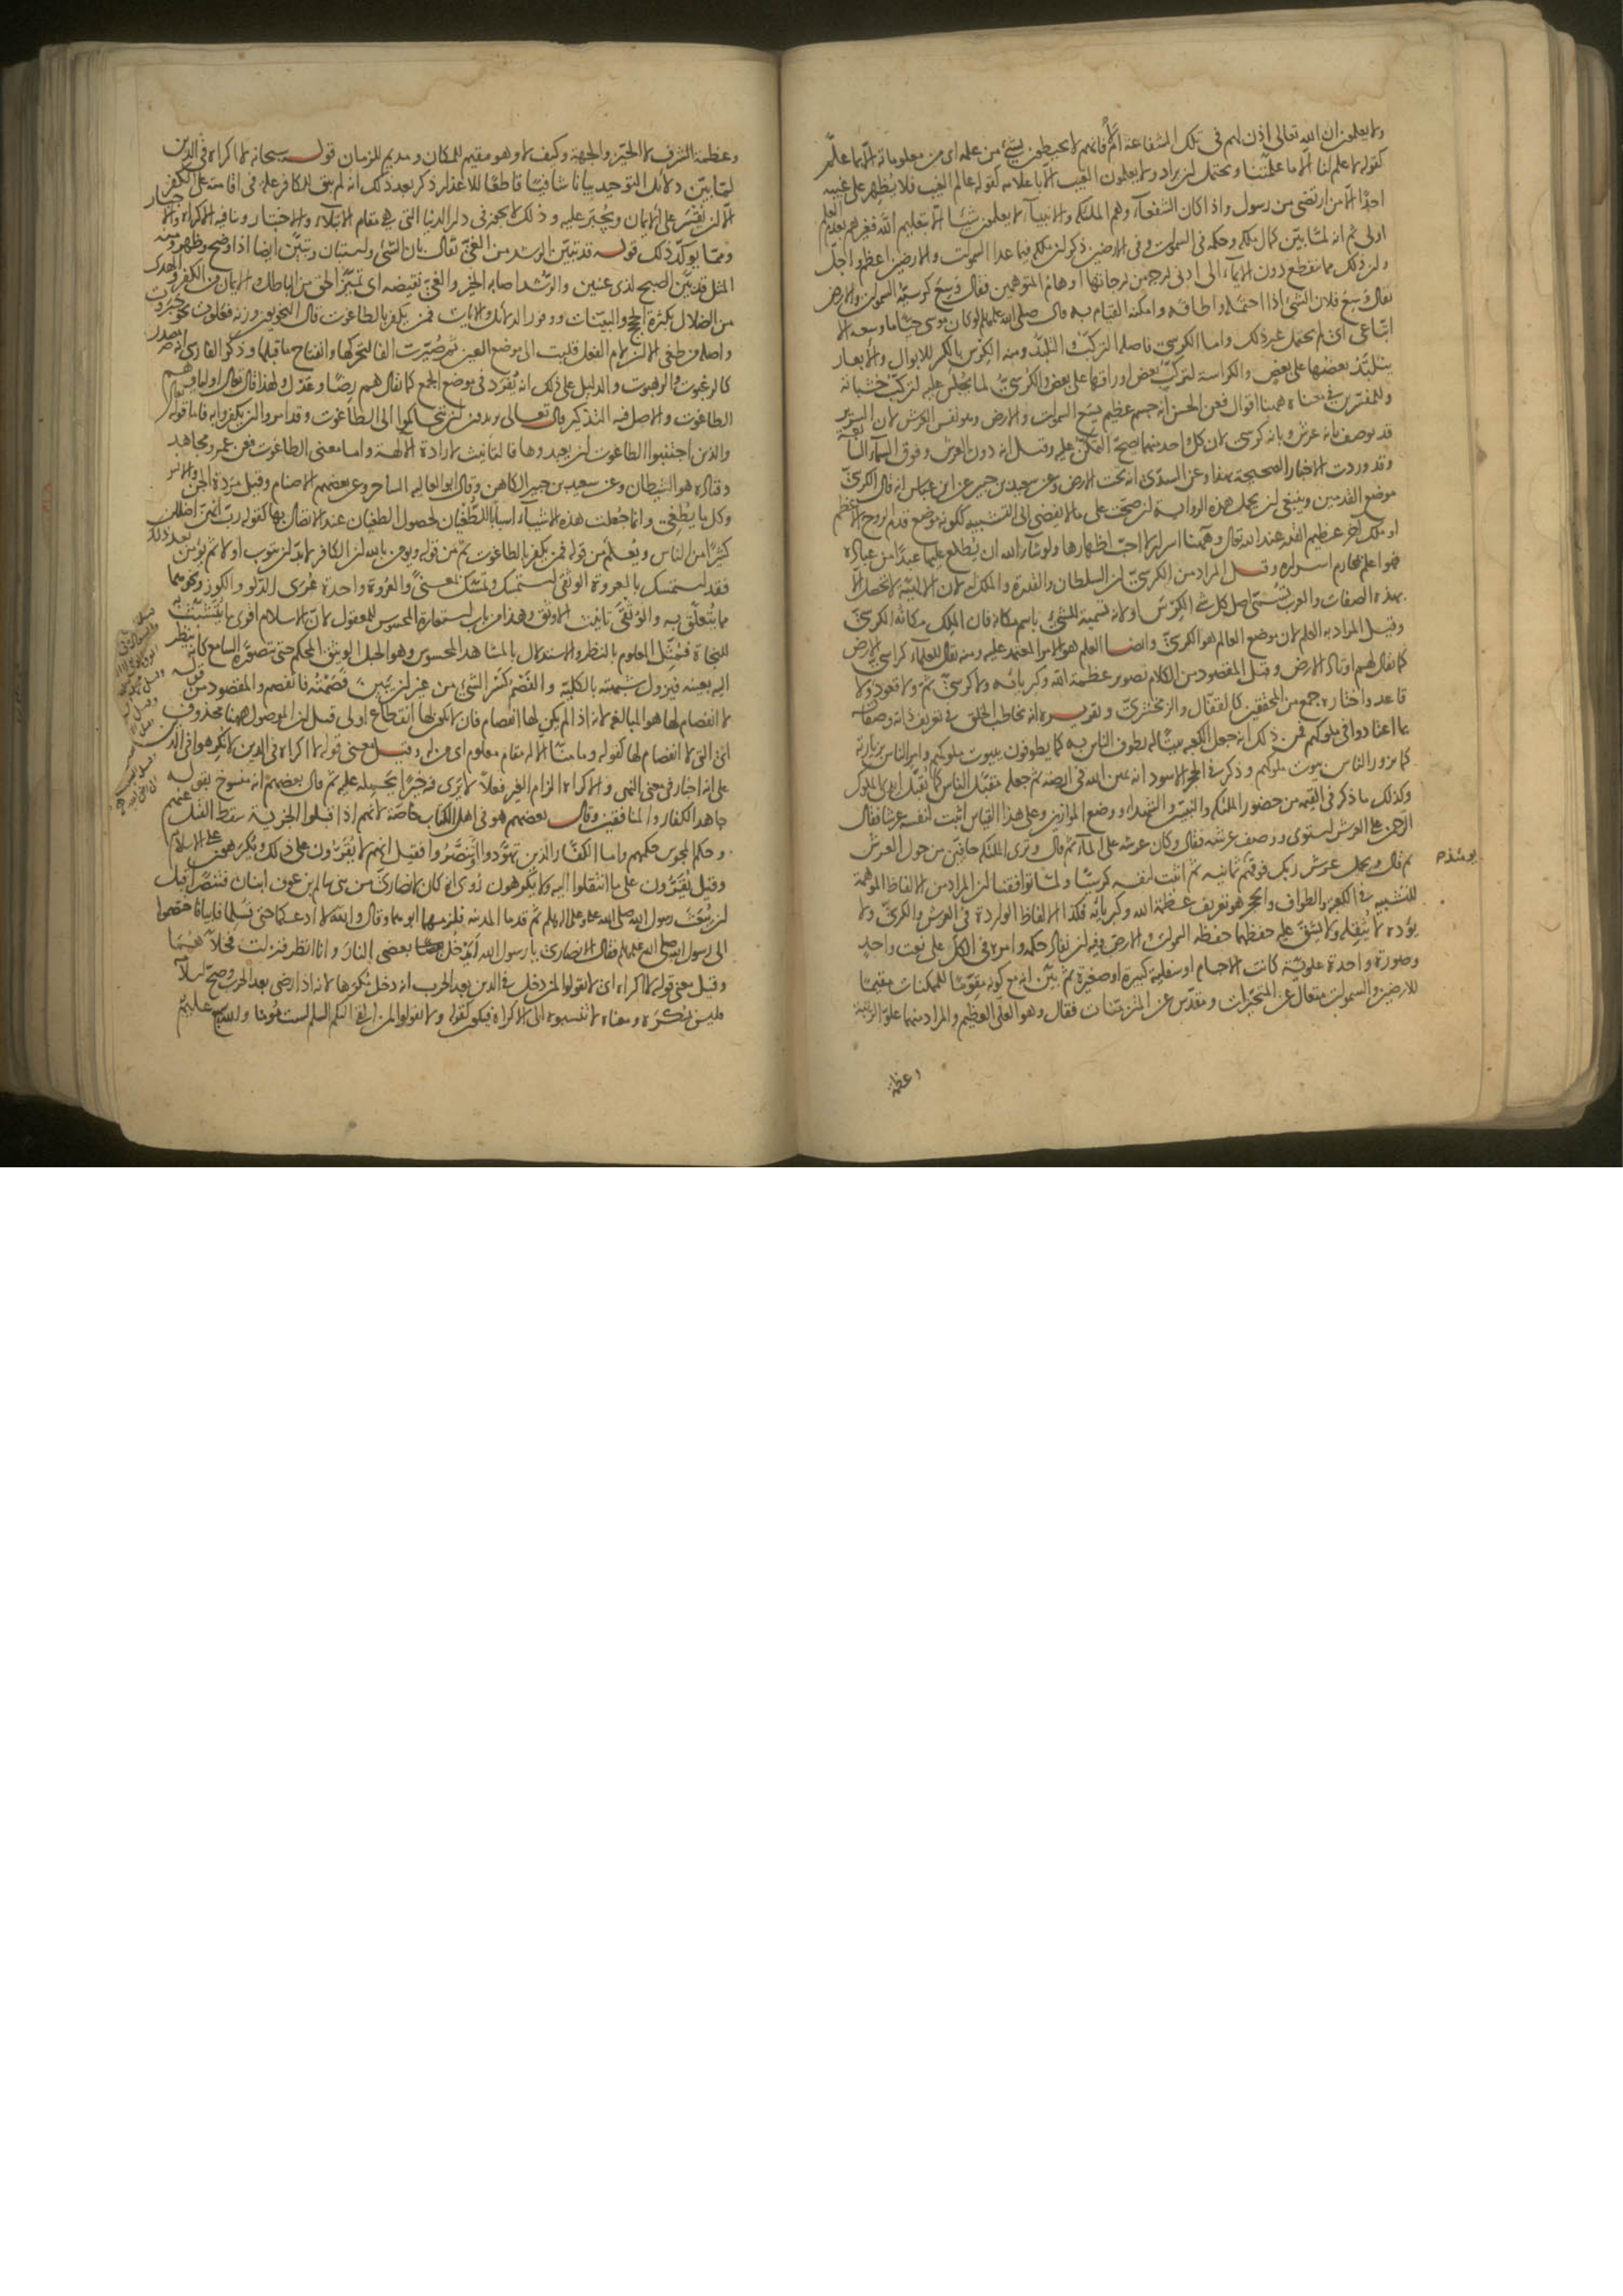 ولا يعلمون ان الله تعالى اذن لهم في تلك الشفاعة ام لا فانهم لا يحيطون بشيء من علمه اى من معلوماته الا بما علم
كقوله لا علم لنا الا ما علمتنا ويحتمل ان يراد ولا يعلمون الغيب الا باعلامه كقوله عالم الغيب فلا يظهر على غيبه
احدا الا من ارتضى من رسول واذا كان الشفعاء وهم الملئكة والانبياء لا يعلمون شيئا الا بتعليم الله فغيرهم بعدم العلم
اولى ثم انه لما بين كمال ملكه وحكمه في السموات وفي الارض ذكر ان ملكه فيما عدا السموات والارض اعظم واجل
وان ذلك مما ينقطع دون الايماء الى ادنى درجة من درجاتها اوهام المتوهمين فقال وسع كرسيه السموات والارض
يقال وسع فلان الشيء اذا احتمله واطاقه وامكنه القيام به قال صلى الله عليه وسلم لو كان موسى حيا ما وسعه الا
اتباعى اى لم يحتمل غير ذلك واما الكرسى فاصله التركب والتلبد ومنه الكرس بالكسر للابوال والابعار
يتلبد بعضها على بعض والكراسة لتركب بعض اوراقها على بعض والكرسى لما يجلس عليه لتركب خشباته
وللمفسرين في معناه ههنا اقوال فعن الحسن انه جسم عظيم يسع السموات والارض وهو نفس العرش لان السرير
قد يوصف بانه عرش وبانه كرسى لان كل واحد منهما يصح التمكن عليه وقيل انه دون العرش وفوق السماء السابعة
وقد وردت الاخبار الصحيحة بهذا وعن السدى انه تحت الارض وعن سعيد بن جبير عن ابن عباس انه قال الكرسى
موضع القدمين وينبغى ان يحمل هذه الرواية ان صحت على ما لا يفضى الى التشبيه ككونه موضع قدم الروح الاعظم
او ملك اخر عظيم القدر عند الله تعالى وههنا اسرار لا احب اظهارها ولو شاء الله ان يطلع عليها عبدا من عباده
فهو اعلم بمحارم اسراره وقيل المراد من الكرسى ان السلطان والقدرة والملك له لان الالهية لا تحصل الا
بهذه الصفات والعرب تسمى اصل كل شيء الكرس او لانه تسمية للشيء باسم مكانه فان الملك مكانه الكرسى
وقيل المراد به العلم لان موضع العالم هو الكرسى وايضا العلم هو الامر المعتمد عليه ومنه يقال للعلماء كراسى الارض
كما يقال لهم اوتاد الارض وقيل المقصود من الكلام تصوير عظمة الله وكبريائه ولا كرسى ثم ولا قعود ولا
قاعد واختاره جمع من المحققين كالقفال والزمخشرى وتقريره انه يخاطب الخلق في تعريف ذاته وصفاته
بما اعتادوا في ملوكهم فمن ذلك انه جعل الكعبة بيتا له يطوف الناس به كما يطوفون ببيوت ملوكهم وامر الناس بزيارته
كما يزور الناس بيوت ملوكهم وذكر في الحجر الاسود انه يمين الله في ارضه ثم جعله مقبل الناس كما يقبل ايدى الملوك
وكذلك ما ذكر في القيمة من حضور الملئكة والنبيين والشهداء ووضع الموازين وعلى هذا القياس اثبت لنفسه عرشا فقال
الرحمن على العرش استوى ووصف عرشه فقال وكان عرشه على الماء ثم قال وترى الملئكة حافين من حول العرش
ثم قال ويحمل عرش ربك فوقهم ثمانية ثم اثبت لنفسه كرسيا ولما توافقنا ان المراد من الالفاظ الموهمة
يومئذ
للتشبيه في الكعبة والطواف والحجر هو تعريف عظمة الله وكبريائه فكذا الالفاظ الواردة في العرش والكرسى ولا
يؤده لا يثقله ولا يشق عليه حفظهما حفظه السموات والارض وفيه ان نفاذ حكمه وامره في الكل على نعت واحد
وصورة واحدة علوية كانت الاجسام او سفلية كبيرة او صغيرة ثم بين انه مع كونه مقوما للممكنات مقيما
للارضين والسموات متعال عن المتحيزات ومقدس عن المزمنات فقال وهو العلى العظيم والمراد منهما علو الرتبة
وعظمة
وعظمة الشرف لا الحيز والجهة وكيف لا وهو مقيم للمكان ومديم للزمان قوله سبحانه لا اكراه في الدين
لما بين دلائل التوحيد بيانا شافيا قاطعا للاعذار ذكر بعد ذلك انه لم يبق للكافر علة في اقامته على الكفر
الا ان يقسر على الايمان ويجبر عليه وذلك لا يجوز في دار الدنيا التي هي مقام الابتلاء والاختبار وينافيه الاكراه والاجبار
ومما يؤكد ذلك قوله قد تبين الرشد من الغى يقال بان الشيء واستبان وتبين ايضا اذا وضح وظهر ومنه
المثل قد تبين الصبح لذى عينين والرشد اصابة الخير والغى نقيضه اى تميز الحق من الباطل والايمان من الكفر والهدى
من الضلال بكثرة الحجج والبينات ووفور الدلائل والايات فمن يكفر بالطاغوت قال النحويون وزنه فعلوت نحو جبروت
واصله من طغى الا ان لام الفعل قلبت الى موضع العين ثم صيرت الفا لتحركها وانفتاح ما قبلها وذكر الفارسى انه مصدر
كالرغبوت والرهبوت والدليل على ذلك انه يفرد في موضع الجمع كما يقال هم رضا وعدل ولهذا قال تعالى اولياؤهم
الطاغوت والاصل فيه التذكير قال تعالى يريدون ان يتحاكموا الى الطاغوت وقد امروا ان يكفروا به فاما قوله
والذين اجتنبوا الطاغوت ان يعبدوها فالتانيث لارادة الالهة واما معنى الطاغوت فعن عمر ومجاهد
وقتادة هو الشيطان وعن سعيد بن جبير الكاهن وقال ابو العالية الساحر وعن بعضهم الاصنام وقيل مردة الجن والانس
وكل ما يطغى وانما جعلت هذه الاشياء اسبابا للطغيان لحصول الطغيان عند الاتصال بها كقوله رب انهن اضللن
كثيرا من الناس ويعلم من قوله فمن يكفر بالطاغوت ثم من قوله ويؤمن بالله ان الكافر لا بد ان يتوب اولا ثم يؤمن بعد ذلك
فقد استمسك بالعروة الوثقى استمسك وتمسك بمعنى والعروة واحدة عرى الدلو والكوز ونحوهما
مما يتعلق به والوثقى تانيث الاوثق وهذا من باب استعارة المحسوس للمعقول لان الاسلام اقوى ما يتشبث به
للنجاة فمثل المعلوم بالنظر والاستدلال بالمشاهد المحسوس وهو الحبل الوثيق المحكم حتى يتصوره السامع كانه ينظر
اليه بعينه فيزول شبهته بالكلية والفصم كسر الشيء من غير ان يبين فصمته فانفصم والمقصود من قوله
لا انفصام لها هو المبالغة لانه اذا لم يكن لها انفصام فان لا يكون لها انقطاع اولى قيل ان الموصول ههنا محذوف
اى التى لا انفصام لها كقوله وما منا الا له مقام معلوم اى من له وقيل معنى قوله لا اكراه في الدين لا تكرهوا في الدين
على انه اخبار في معنى النهى والاكراه الزام الغير فعلا لا يرى فيه خيرا يحمله عليه ثم قال بعضهم انه منسوخ بقوله
جاهد الكفار والمنافقين وقال بعضهم هو في اهل الكتاب خاصة لانهم اذا قبلوا الجزية سقط القتل عنهم
وحكم المجوس حكمهم واما الكفار الذين تهودوا او تنصروا فقيل انهم لا يقرون على ذلك ويكرهون على الاسلام
وقيل يقرون على ما انتقلوا اليه ولا يكرهون روى انه كان لانصارى من بنى سالم بن عوف ابنان فتنصرا قبل
ان يبعث رسول الله صلى الله عليه وعلى اله وسلم ثم قدما المدينة فلزمهما ابوهما وقال والله لا ادعكما حتى تسلما فابيا فاختصموا
الى رسول الله صلى الله عليه وسلم فقال الانصارى يا رسول الله ايدخل بعضى النار وانا انظر فنزلت فخلاهما
وقيل معنى قوله لا اكراه اى لا تقولوا لمن دخل في الدين بعد الحرب انه دخل مكرها لانه اذا رضى بعد الحرب وصح اسلامه
فليس بمكره ومعناه لا تنسبوه الى الاكراه فيكون كقوله ولا تقولوا لمن القى اليكم السلم لست مؤمنا والله سميع عليم